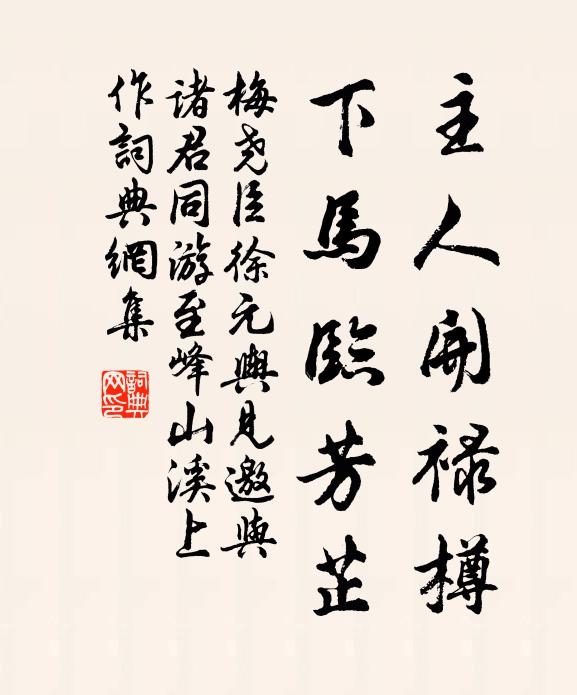 主人開禄樽
下馬臨芳芷
梅堯臣徐元輿見邀與
諸君同游至峰山溪上
作詞典網集
詞典网印